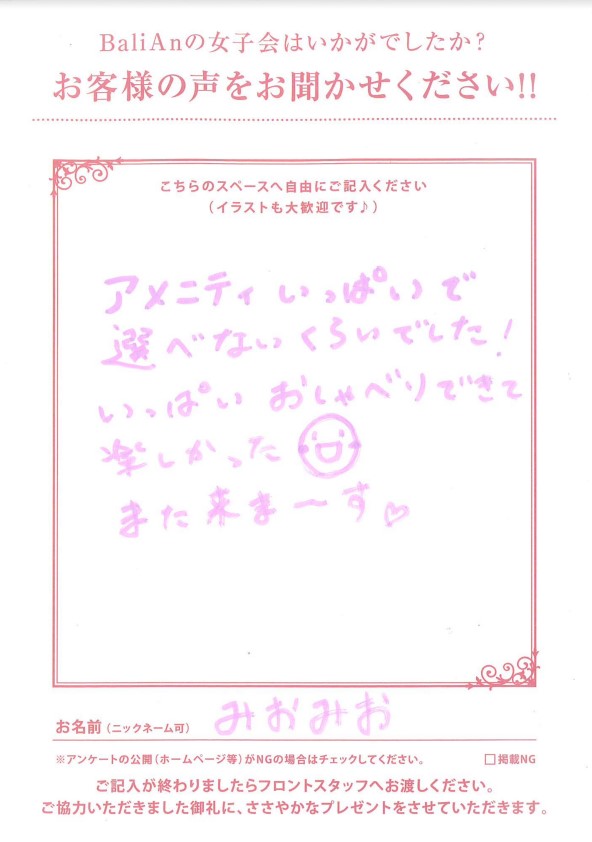 BaliAnの女子会はいかがでしたか?
お客様の声をお聞かせください!!
こちらのスペースへ自由にご記入ください
(イラストも大歓迎です♪)
アメニティいっぱいで
選べないくらいでした!
いっぱいおしゃべりできて
楽しかった
また来ま〜す♡
お名前(ニックネーム可) みおみお
※アンケートの公開(ホームページ等)がNGの場合はチェックしてください。 □掲載NG
ご記入が終わりましたらフロントスタッフへお渡しください。
ご協力いただきました御礼に、ささやかなプレゼントをさせていただきます。